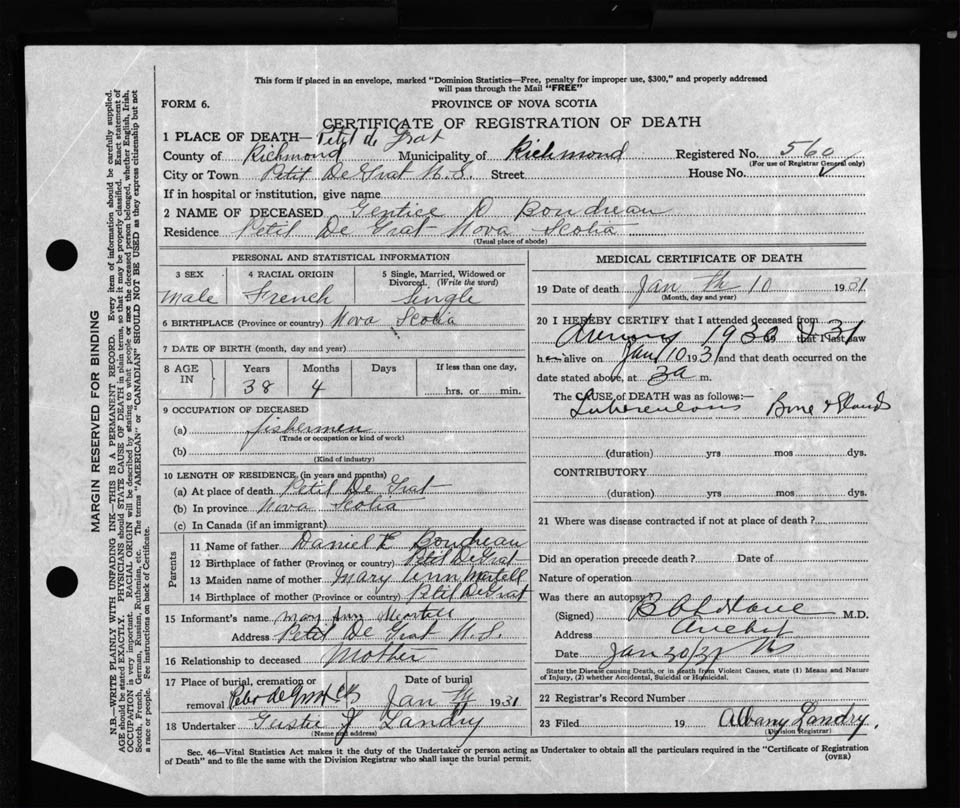 This form if placed in an envelope, marked "Dominion Statistics—Free, penalty for improper use, $300," and properly addressed
will pass through the Mail "FREE"
FORM 6.
PROVINCE OF NOVA SCOTIA
CERTIFICATE OF REGISTRATION OF DEATH
1 PLACE OF DEATH— Petit de Grat
County of Richmond Municipality of Richmond Registered No. 560
(For use of Registrar General only)
City or Town Petit De Grat N.S. Street House No.
If in hospital or institution, give name
2 NAME OF DECEASED D Boudreau
Residence Petit De Grat Nova Scotia
(Usual place of abode)
PERSONAL AND STATISTICAL INFORMATION
3 SEX
Male
4 RACIAL ORIGIN
French
5 Single, Married, Widowed or
Divorced. (Write the word)
Single
6 BIRTHPLACE (Province or country) Nova Scotia
7 DATE OF BIRTH (month, day and year)
8 AGE
IN
Years Months Days If less than one day,
38 4 hrs. or min.
9 OCCUPATION OF DECEASED
(a) fishermen
(Trade or occupation or kind of work)
(b)
(Kind of industry)
10 LENGTH OF RESIDENCE (in years and months)
(a) At place of death Petit De Grat
(b) In province Nova Scotia
(c) In Canada (if an immigrant)
Parents
11 Name of father Daniel Boudreau
12 Birthplace of father (Province or country) Petit De Grat
13 Maiden name of mother Mary Ann Martell
14 Birthplace of mother (Province or country) Petit De Grat
15 Informant's name Mary Ann Martell
Address Petit De Grat N.S.
16 Relationship to deceased Mother
17 Place of burial, cremation or Date of burial
removal Petit de Grat Jan 1931
18 Undertaker J Landry
(Name and address)
MEDICAL CERTIFICATE OF DEATH
19 Date of death Jan th 10 1931
(Month, day and year)
20 I HEREBY CERTIFY that I attended deceased from
1930 31 that I last saw
h alive on Jan 10 1931 and that death occurred on the
date stated above, at 3a m.
The CAUSE OF DEATH was as follows:—
Tuberculosis Bone & Glands
(duration) yrs mos dys.
CONTRIBUTORY
(duration) yrs mos dys.
21 Where was disease contracted if not at place of death?
Did an operation precede death? Date of
Nature of operation
Was there an autopsy?
(Signed) M.D.
Address Arichat
Date Jan 30/31
State the Disease causing Death, or in death from Violent Causes, state (1) Means and Nature
of Injury, (2) whether Accidental, Suicidal or Homicidal.
22 Registrar's Record Number
23 Filed 19 Albany Landry.
(Division Registrar)
Sec. 46—Vital Statistics Act makes it the duty of the Undertaker or person acting as Undertaker to obtain all the particulars required in the "Certificate of Registration
of Death" and to file the same with the Division Registrar who shall issue the burial permit.
(OVER)
MARGIN RESERVED FOR BINDING
N.B.—WRITE PLAINLY WITH UNFADING INK—THIS IS A PERMANENT RECORD. Every item of information should be carefully supplied.
AGE should be stated EXACTLY. PHYSICIANS should STATE CAUSE OF DEATH in plain terms, so that it may be properly classified. Exact statement of
OCCUPATION is very important. RACIAL ORIGIN will be described by stating what people or race the deceased person belonged, whether English, Irish,
Scotch, French, German, Russian, Ruthenian, etc. The terms "AMERICAN" or "CANADIAN" SHOULD NOT BE USED as they express citizenship but not
a race or people. Fee instructions on back of Certificate.